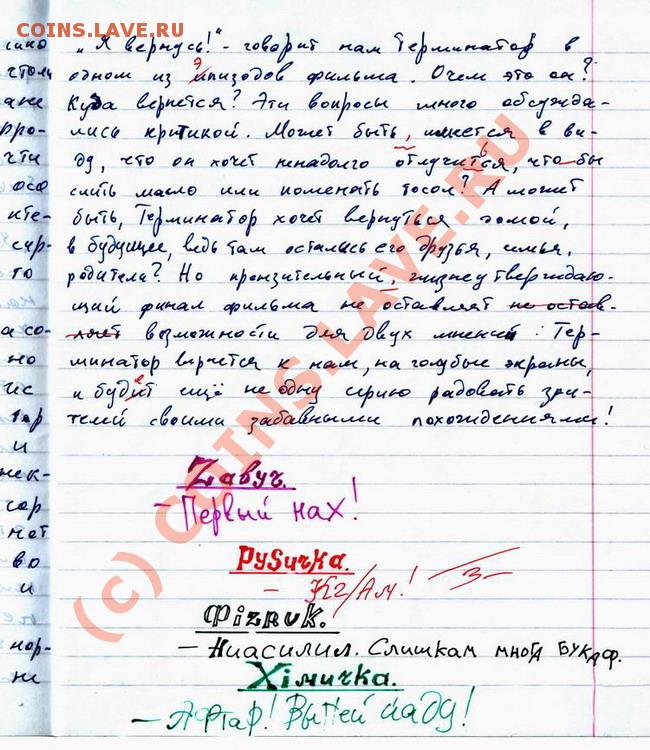 COINS.LAVE.RU
„Я вернусь!" - говорит нам Терминатор в
одном из эпизодов фильма. О чем это он?
Куда вернется? Эти вопросы много обсужда-
лись критикой. Может быть, имеется в ви-
ду, что он хочет ненадолго отлучиться, что бы
слить масло или поменять тосол? А может
быть, Терминатор хочет вернуться домой,
в будущее, ведь там остались его друзья, семья,
родители? Но пронзительный, жизнеутверждаю-
щий финал фильма не оставляет не остав-
ляет возможности для двух мнений: Тер-
минатор вернется к нам, на голубые экраны,
и будет ещё не одну серию радовать зри-
телей своими забавными похождениями!
Zавуч.
- Первый нах!
РуSичка.
- КГ/Ам! 3-
Фizruk.
- Ниасилил. Слишкам многа букаф.
Хiмичка.
- Афтар! Выпей йаду!
(c) COINS.LAVE.RU